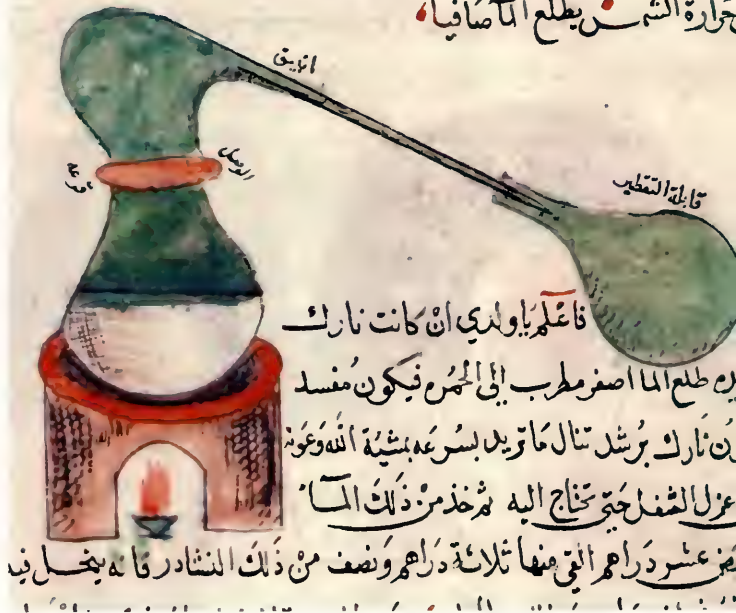 حرارة الشمس يطلع الما صافيا
انبيق
الوصل
قرعة
قابلة التقطير
فاعلم يا ولدي ان كانت نارك
طلع الما اصفر مطرب الى الحمره فيكون مفسد
نارك برشد تنال ما تريد بسرعه بمشية الله وعونه
عزل الثفل حتى تحتاج اليه ثم خذ من ذلك المآ
عشر دراهم القي منها ثلاثة دراهم ونصف من ذلك النشادر فانه ينحل فيه